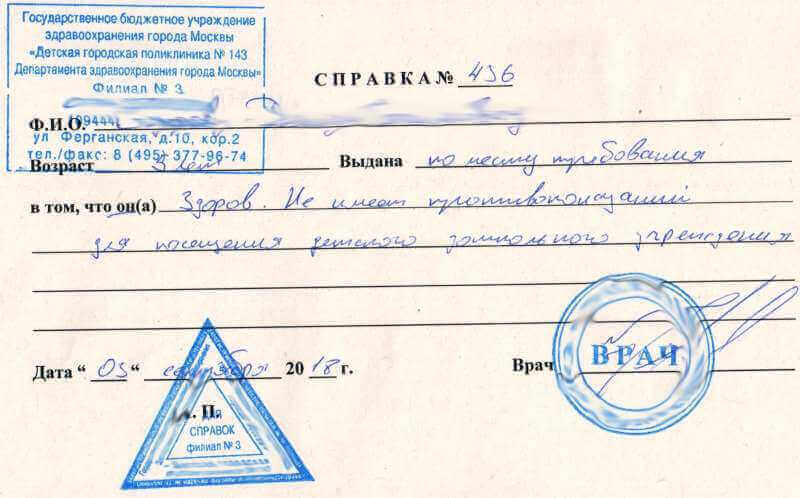 Государственное бюджетное учреждение
здравоохранения города Москвы
«Детская городская поликлиника № 143
Департамента здравоохранения города Москвы»
Филиал № 3
109444
ул Ферганская, д.10, кор.2
тел./факс: 8 (495) 377-96-74
СПРАВКА № 436
Ф.И.О.
Возраст 3 лет Выдана по месту требования
в том, что он(а) Здоров. Не имеет противопоказаний
для посещения детского дошкольного учреждения
Дата “ 03 “ сентября 20 18 г. Врач
ВРАЧ
. П.
ДЛЯ
СПРАВОК
филиал № 3